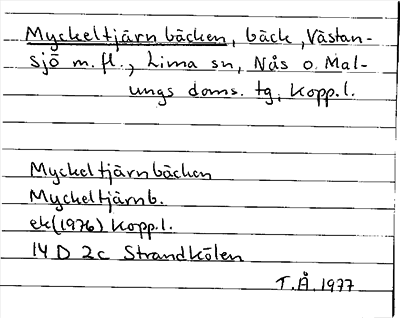 Myckeltjärnbäcken, bäck, Västan-
sjö m.fl., Lima sn, Nås o. Mal-
ungs doms. tg, Kopp.l.
Myckeltjärnbäcken
Myckeltjärnb.
ek(1976) Kopp.l.
14 D 2c Strandkölen
T.Å. 1977